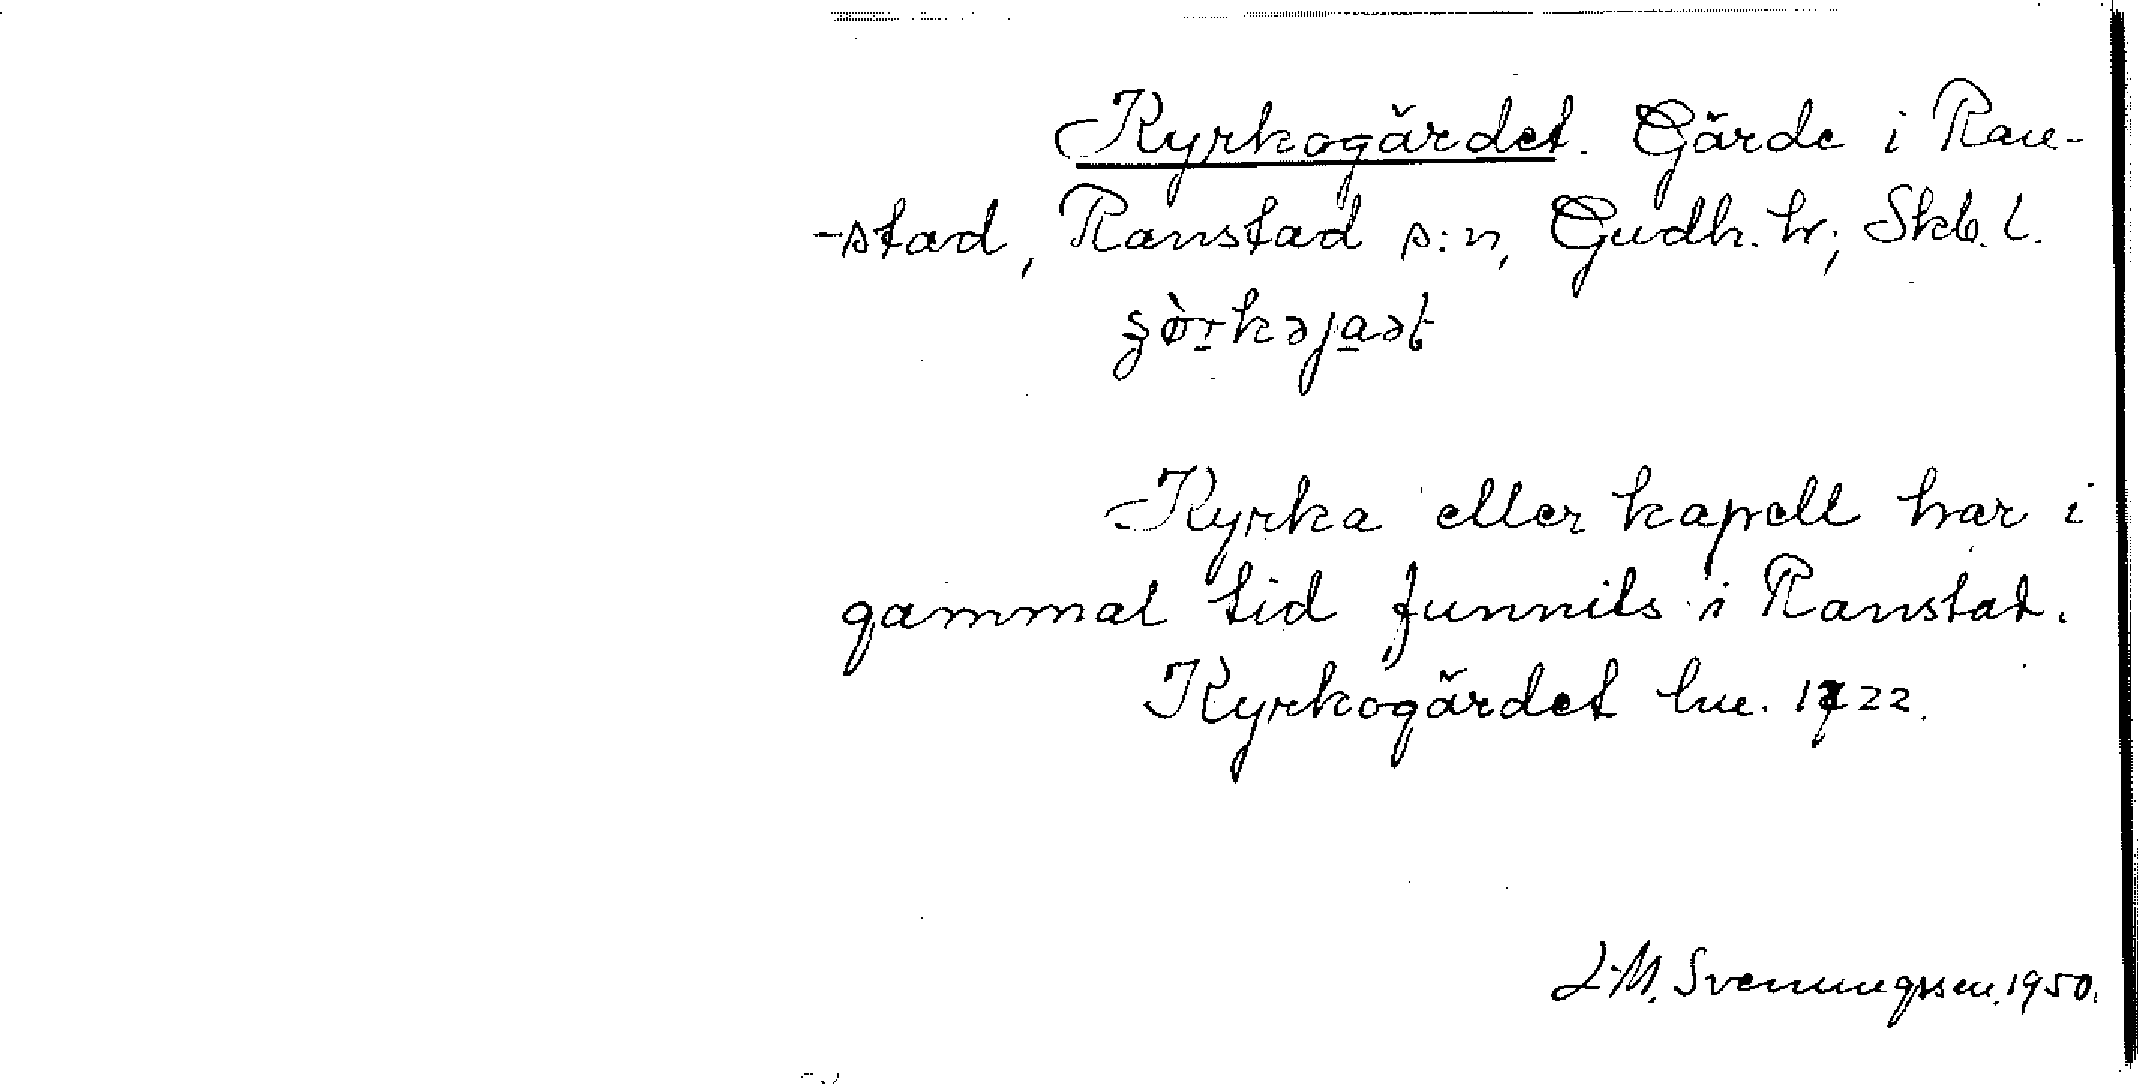 Kyrkogärdet. Gärde i Ran-
-stad, Ranstad s:n, Gudh. hr; Skb. l.
Kyrka eller kapell har i
gammal tid funnits i Ranstad.
Kyrkogärdet lm. 1722.
L.M. Svenungsson. 1950.